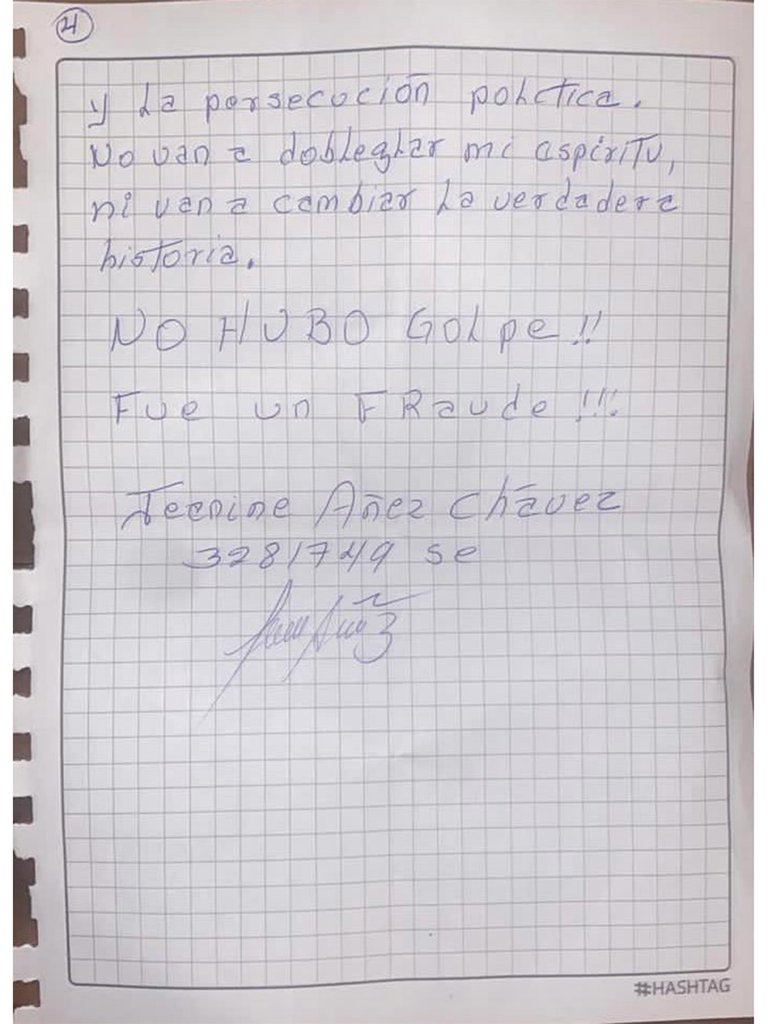 4
y La persecución política.
No van a dobleglar mi espíritu,
ni van a cambiar La verdadera
historia.
NO HUBO GOLpe!!
Fue un FRaude!!!
Jeanine Añez Chávez
3281749 se
#HASHTAG